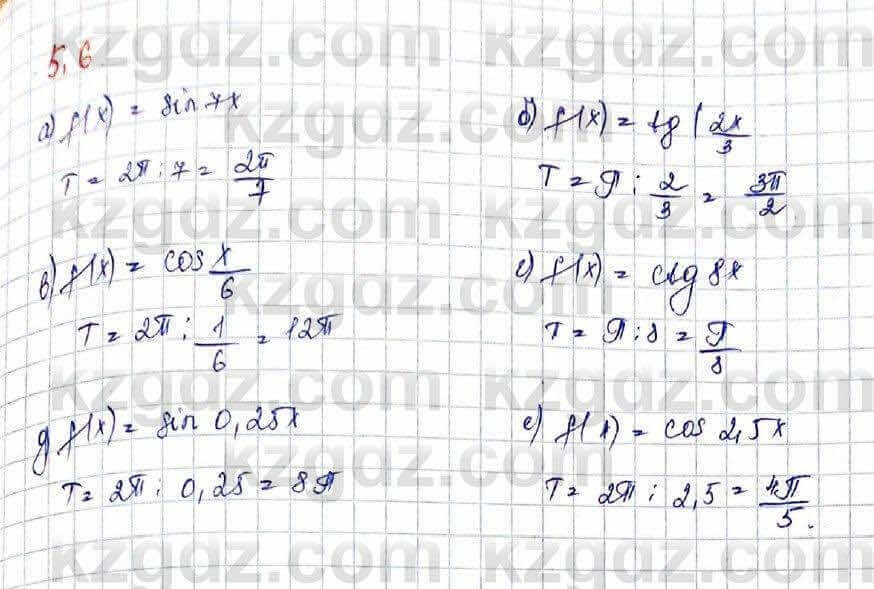 5.6
а) f(x) = sin 7x
T = 2π : 7 = 2π/7
б) f(x) = tg (2x/3
T = π : 2/3 = 3π/2
в) f(x) = cos x/6
T = 2π : 1/6 = 12π
г) f(x) = ctg 8x
T = π : 8 = π/8
д) f(x) = sin 0,25x
T = 2π : 0,25 = 8π
е) f(x) = cos 2,5x
T = 2π : 2,5 = 4π/5.
kzgdz.com
kzgdz.com
kzgdz.com
kzgdz.com
kzgdz.com
kzgdz.com
kzgdz.com
kzgdz.com
kzgdz.com
kzgdz.com
kzgdz.com
kzgdz.com
kzgdz.com
kzgdz.com